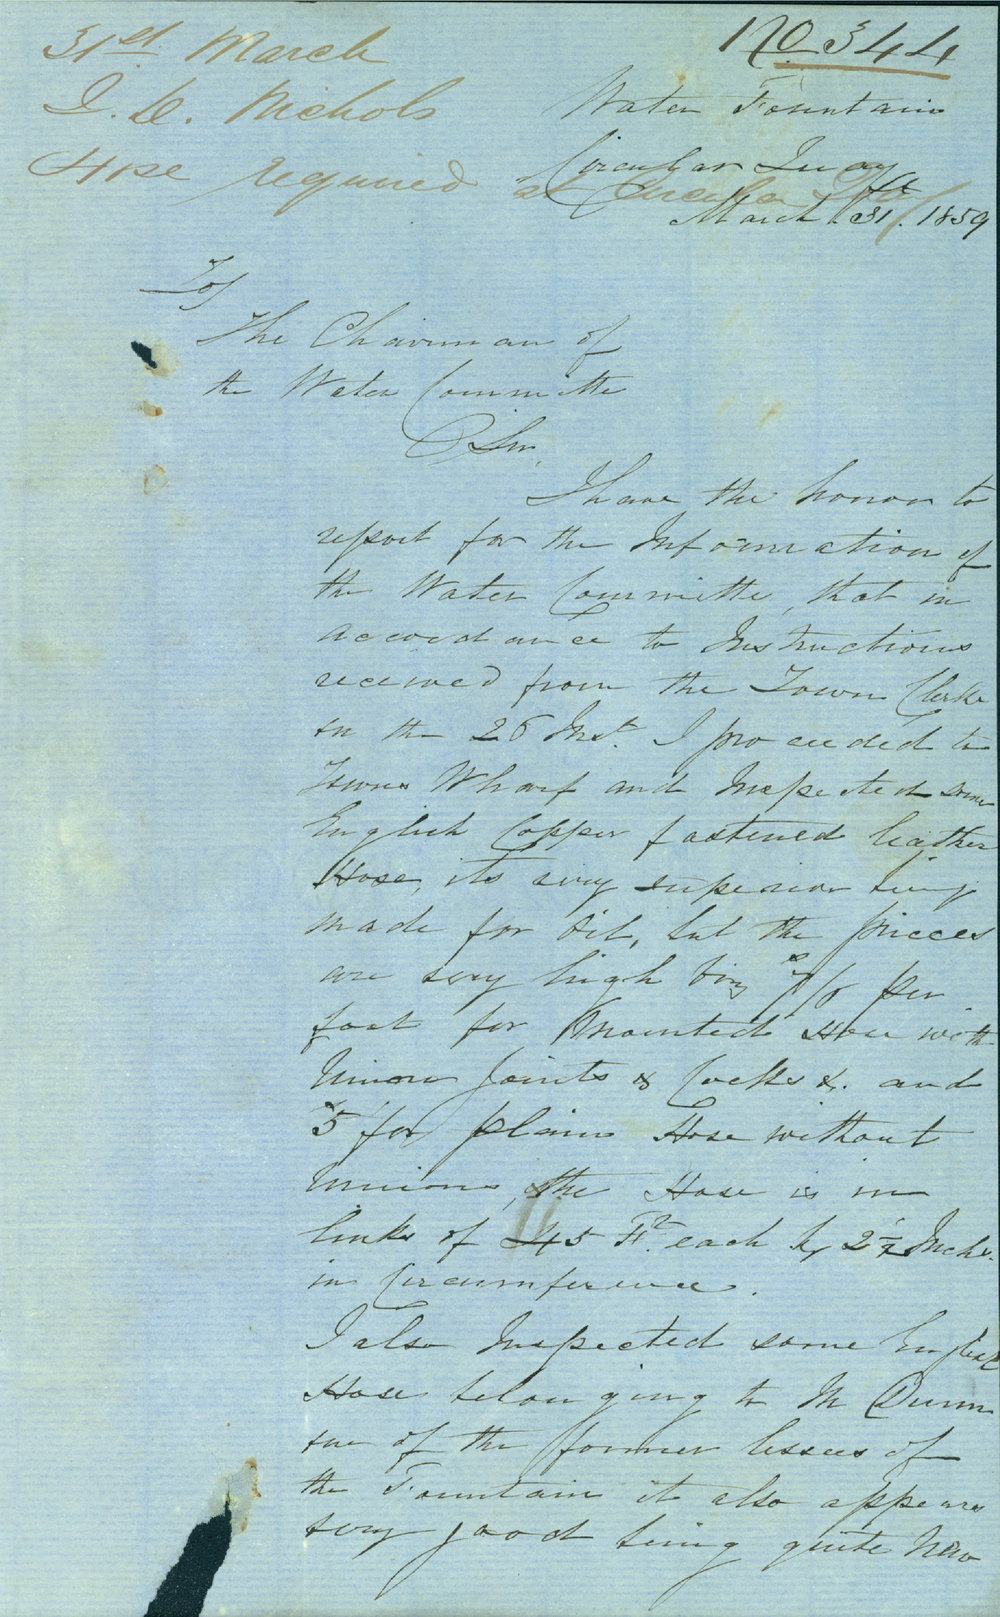 31st March
No 344
J. C. Nichols
Hose required at Circular Quay
Water Fountain
Circular Quay
March 31st. 1859
To/
The Chairman of
the Water Committe
Sir,
I have the honor to
report for the Information of
the Water Committe, that in
accordance to Instructions
received from the Town Clerke
on the 26 Inst. I proceeded to
Towns Wharf and Inspected some
English Copper fastened leather
Hose, its very superior being
made for Oil, but the prices
are very high being per
foot for Mounted Hose with
Union Joints & Cocks &. and
5/ for plain Hose without
unions, the Hose is in
links of 45 Ft. each by 2½ Inchs.
in Circumference.
I also Inspected some English
Hose belonging to Mr Dunn
one of the former lessees of
the Fountain it also appears
very good being quite New